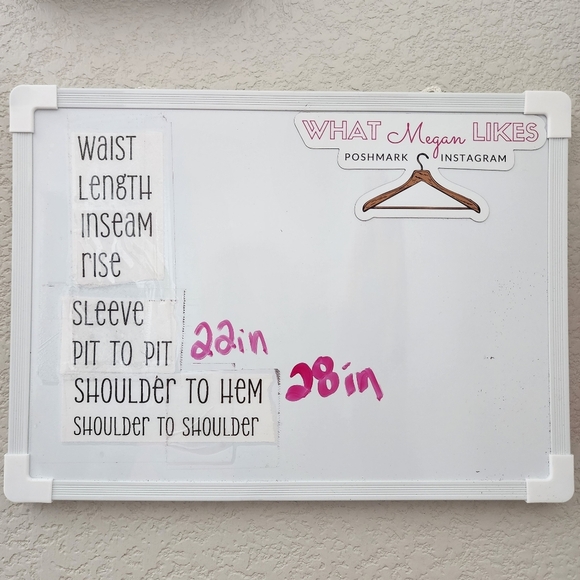 WHAT Megan LIKES
POSHMARK INSTAGRAM
WAIST
LENGTH
INSEAM
RISE
SLEEVE
PIT TO PIT 22in
SHOULDER TO HEM 28in
SHOULDER TO SHOULDER